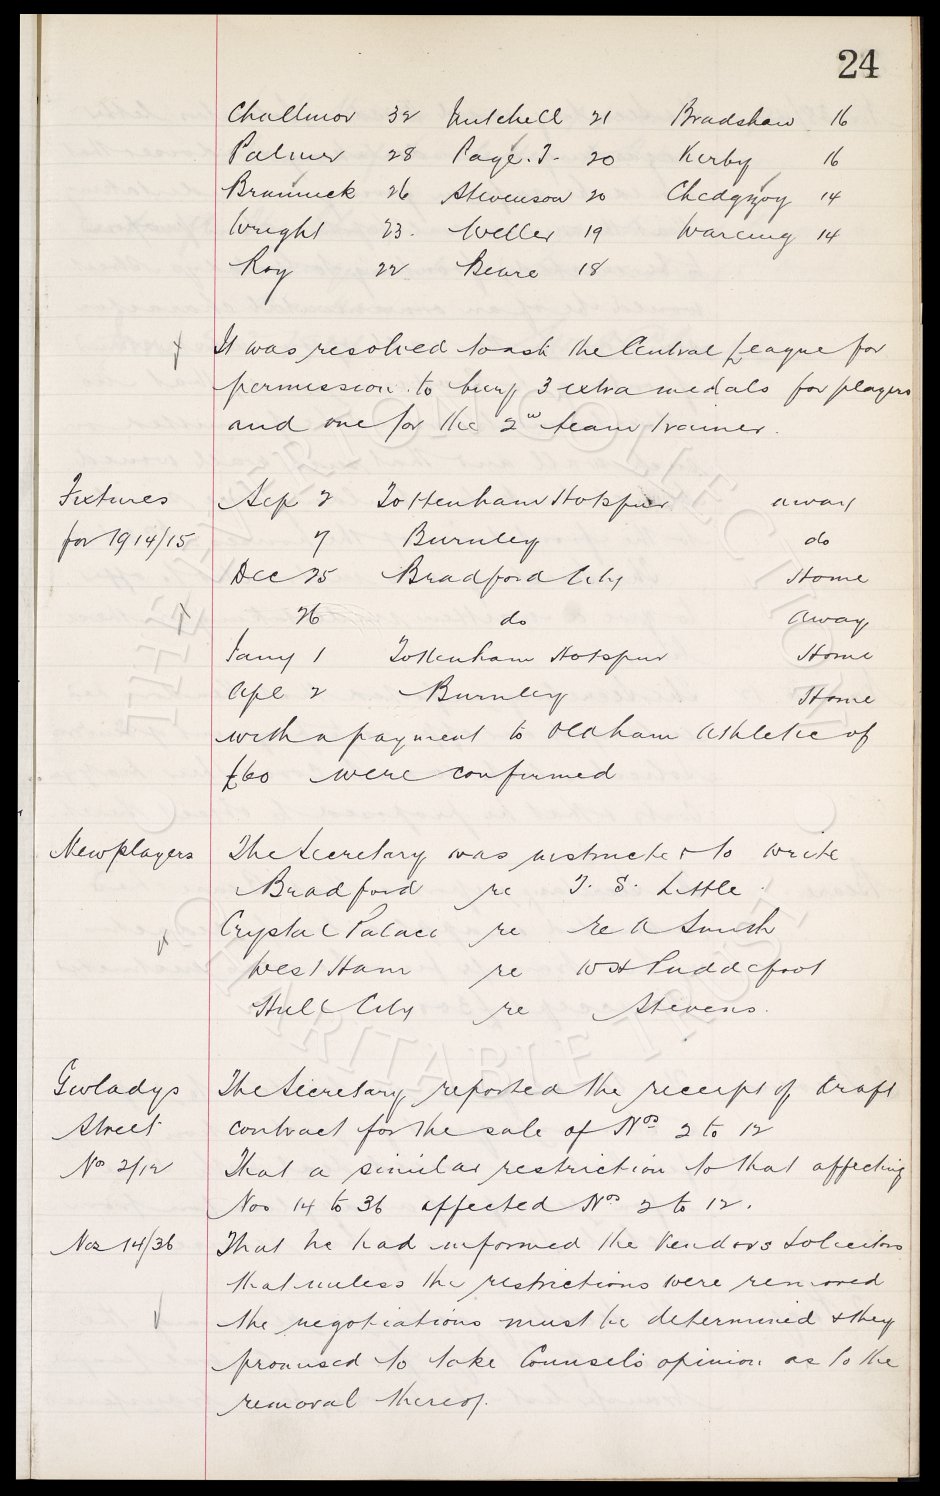 24
Challinor 32 Mitchell 21 Bradshaw 16
Palmer 28 Page. T. 20 Kirby 16
Brannick 26 Stevenson 20 Chedgzoy 14
Wright 23. Weller 19 Wareing 14
Roy 22 Beare 18
It was resolved to ask the Central League for
permission to buy 3 extra medals for players
and one for the 2nd team trainer.
Fixtures Sep 2 Tottenham Hotspur away
for 1914/15 7 Burnley do
Dec 25 Bradford City Home
26 do away
Jany 1 Tottenham Hotspur Home
Apl 2 Burnley Home
with a payment to Oldham Athletic of
£60 were confirmed
New players The Secretary was instructed to write
Bradford re T. S. Little
Crystal Palace re re A Smith
West Ham re Puddefoot
Hull City re Stevens.
Gwladys The Secretary reported the receipt of draft
Street contract for the sale of Nos 2 to 12
Nos 2/12 That a similar restriction to that affecting
Nos 14 to 36 affected Nos 2 to 12.
Nos 14/36 That he had informed the Vendors Solicitors
that unless the restrictions were removed
the negotiations must be determined & they
promised to take Counsel's opinion as to the
removal thereof.
THE EVERTON COLLECTION
CHARITABLE TRUST